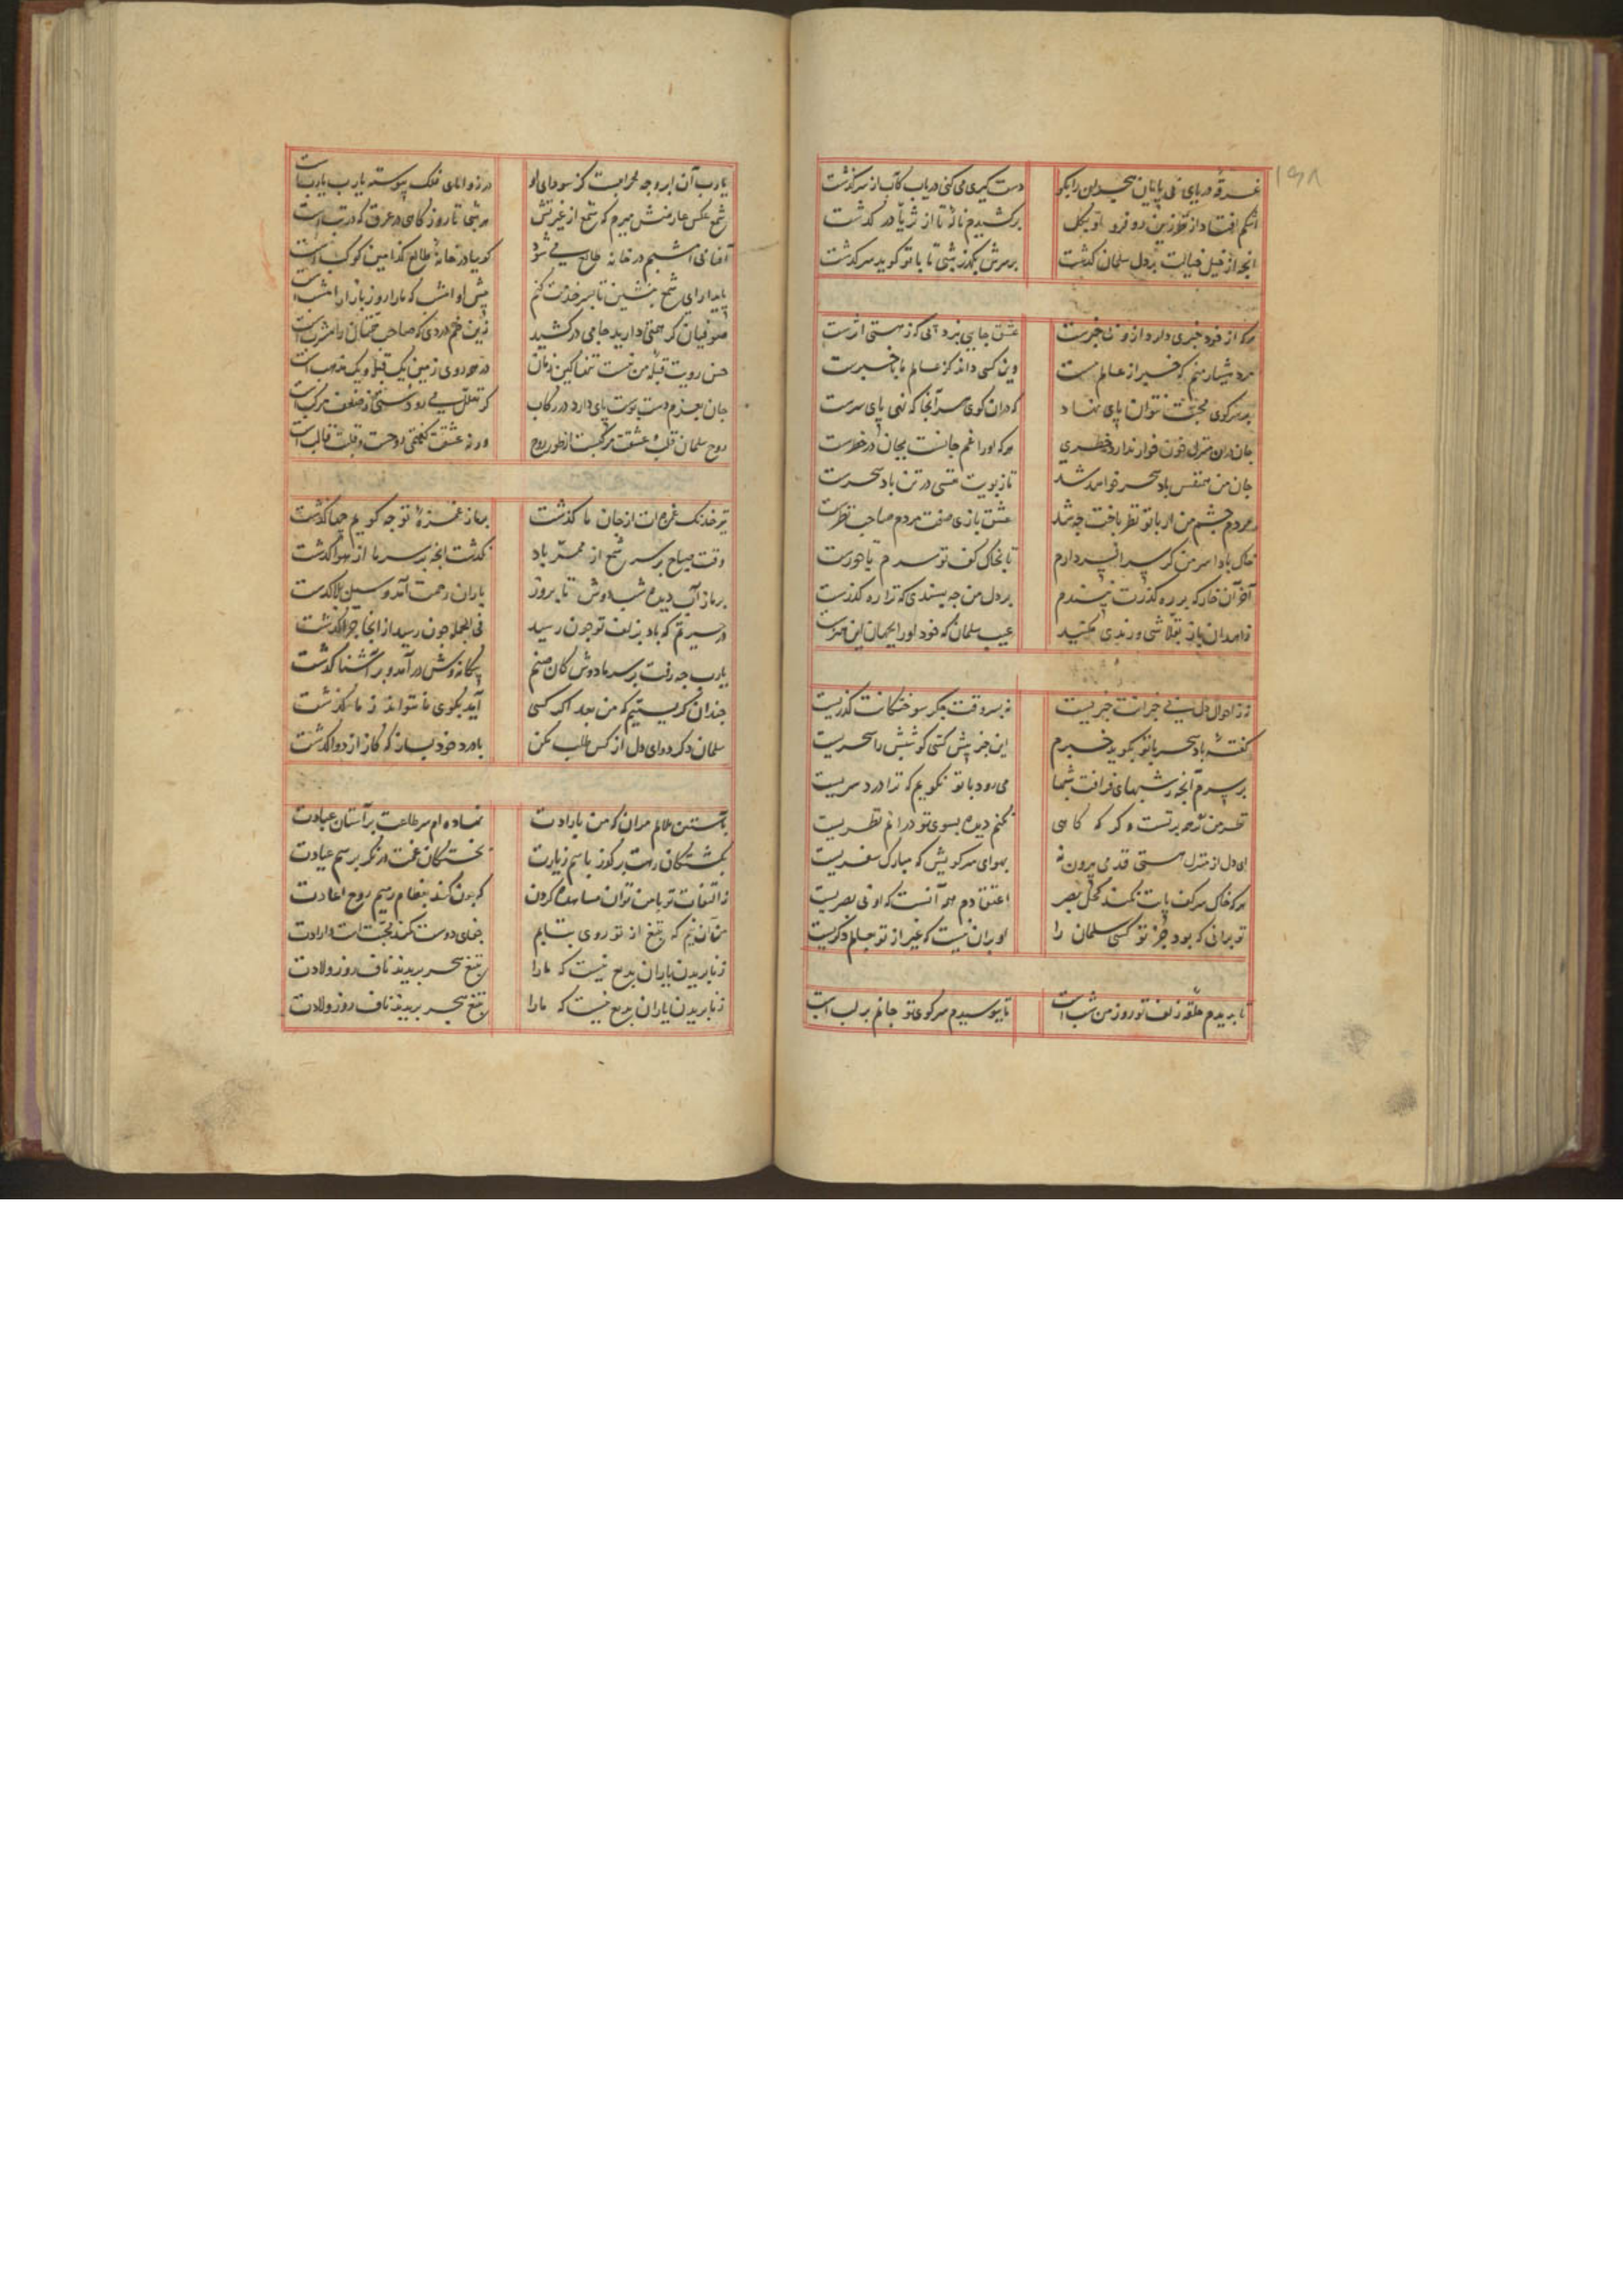 ۱۵۸
غرقه دریای بی پایان هجران را بکو
دست کیری می کنی دریاب کآب از سر گذشت
اشکم افتاد از نظر زین رو فرو
برکشیدم ناله تا از ثریا در گذشت
انچه از خیل خیالت بر دل سلمان گذشت
برسرش بگذر شبی تا با تو گوید سرگذشت
هرکه از خود خبری دارد ازو بی خبرست
عشق جایی نبرد پی که ز هستی اثرست
مرد هشیار منم که خبر از عالم نیست
وین کسی داند کز عالم ما باخبرست
بر سر کوی محبت نتوان پای نهاد
که دران کوی سراسر آنجا که نهی پای سرست
جان دران منزل خون خوار ندارد خطری
هرکه او را غم جانست بجان در خطرست
جان من همنفس باد سحر خواهد شد
تا ز بویت نفسی در تن باد سحرست
مردم چشم من ار با تو نظر باخت چه شد
عشق بازی صفت مردم صاحب نظرست
خاک بادا سر من گر سر افسر دارم
تا بخاک کف تو
آخر آن خار که بر ره گذرت نپسندم
بر دل من چه پسندی که ترا ره گذرست
زاهدان باز بقلاشی و رندی مکنید
عیب سلمان که خود او را بجهان این هنرست
ز احوال دل بی خبرانت خبریست
نه بسر وقت جگر سوختگانت گذریست
گفته باد سحر با تو بگوید خبرم
این خبر پیش کسی گو شبش را سحریست
بر سرم آنچه ز شبهای فراقت شبها
می رود با تو نگویم که ترا درد سریست
نظر من همه بر تست و گر گه گاهی
نکنم دیده بسوی تو در آنم نظریست
ای دل از منزل هستی قدمی بیرون نه
بهوای سر کویش که مبارک سفریست
هرکه خاک سر کف پات نکند کحل بصر
اعتقادم همه آنست که او بی بصریست
تو برانی که بود جز تو کسی سلمان را
او بران نیست که غیر از تو بعالم دگریست
تا بریدم حلقه زلف تو روز من شب است
تا ببوسیدم سر کوی تو جانم بر لب است
یارب آن ابرو چه محرابست کز سودای او
در زوایای فلک پیوسته یارب یارب است
شمع عکس عارضش میرم که شمع از غیرتش
هر شبی تا روز گاهی در عرق گه در تب است
آفتابی امشبم در خانه طالع می شود
گوییا در خانه طالع کدامین کوکب است
پای دار ای شمع بنشین تا بسر خدمت کنم
پیش او امشب که ما را روز بازار امشب است
صوفیان گر همتی دارید جامی درکشید
زین خم دردی که صاحب همتان را مشرب است
حسن رویت قبله من نیست تنها کین زمان
در همه روی زمین یک قبله و یک مذهب است
جان بعزم دست بوست پای دارد در رکاب
گر تعلل می رود سستی ز ضعف مرکب است
روح سلمان قلب عشقت مرکبست از طور روح
ورنه عشقت گفتمی روحست و قلبت قالب است
تیر خدنگ غمزه ات از جان ما گذشت
بر ما ز غمزه تو چه گویم چها گذشت
وقت صباح بر سر شمع از ممر باد
نگذشت انچه بر سر ما از هوا گذشت
بر ما ز آب دیده شب دوش تا بروز
باران رحمت آمد و سیل بلا گذشت
در حیرتم که باد بزلف تو چون رسید
فی الجمله چون رسید از انجا چرا گذشت
یارب چه رفت بر سر ما دوش کان صنم
بیگانه وش درآمد و بر آشنا گذشت
چندان گریستیم که من بعد اگر کسی
آید بکوی ما نتواند ز ما گذشت
سلمان دگر دوای دل از کس طلب مکن
با درد خود بساز که کار از دوا گذشت
بآستین ملالم مران که من بارادت
نهاده ام سر طاعت بر آستان عبادت
بکشتگان رهت برگذر باسم زیارت
بخستگان غمت درنگر برسم عیادت
ز التفات تو با من توان مشاهده کردن
که چون کند بعظام رمیم روح اعادت
من آن نیم که بتیغ از تو روی بتابم
جفای دوست کمند محبت است و ارادت
زنا بریدن یاران بدیع نیست که ما را
بتیغ هجر بریدند ناف روز ولادت
زنا بریدن یاران بدیع نیست که ما را
بتیغ هجر بریدند ناف روز ولادت